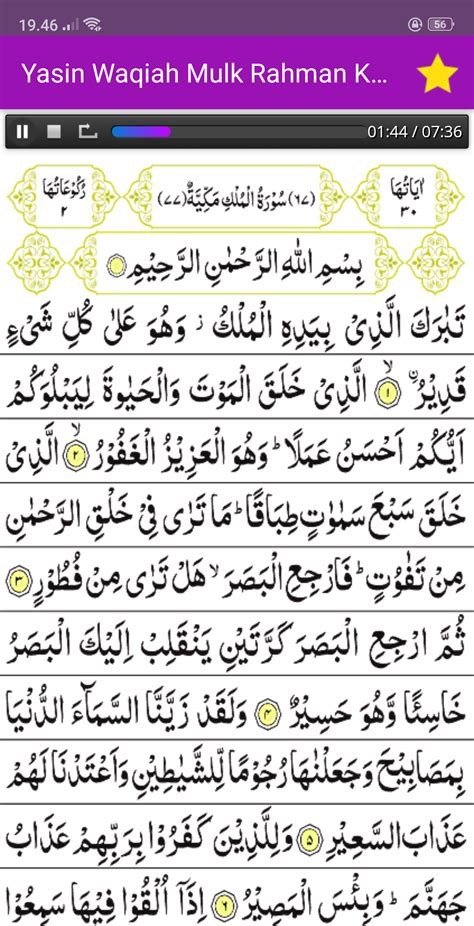 19.46
56
Yasin Waqiah Mulk Rahman K...
01:44 / 07:36
اٰيَاتُهَا ٣٠ (٦٧) سُوْرَةُ الْمُلْكِ مَكِّيَّةٌ (٧٧) رُكُوْعَاتُهَا ٢
بِسْمِ اللّٰهِ الرَّحْمٰنِ الرَّحِيْمِ
تَبٰرَكَ الَّذِىْ بِيَدِهِ الْمُلْكُ ز وَهُوَ عَلٰى كُلِّ شَىْءٍ
قَدِيْرُ ۨۙ ١ الَّذِىْ خَلَقَ الْمَوْتَ وَالْحَيٰوةَ لِيَبْلُوَكُمْ
اَيُّكُمْ اَحْسَنُ عَمَلًا ؕ وَهُوَ الْعَزِيْزُ الْغَفُوْرُ ۙ ٢ الَّذِىْ
خَلَقَ سَبْعَ سَمٰوٰتٍ طِبَاقًا ؕ مَا تَرٰى فِىْ خَلْقِ الرَّحْمٰنِ
مِنْ تَفٰوُتٍ ؕ فَارْجِعِ الْبَصَرَ ۙ هَلْ تَرٰى مِنْ فُطُوْرٍ ٣
ثُمَّ ارْجِعِ الْبَصَرَ كَرَّتَيْنِ يَنْقَلِبْ اِلَيْكَ الْبَصَرُ
خَاسِئًا وَّهُوَ حَسِيْرٌ ٤ وَلَقَدْ زَيَّنَّا السَّمَآءَ الدُّنْيَا
بِمَصَابِيْحَ وَجَعَلْنٰهَا رُجُوْمًا لِّلشَّيٰطِيْنِ وَاَعْتَدْنَا لَهُمْ
عَذَابَ السَّعِيْرِ ٥ وَلِلَّذِيْنَ كَفَرُوْا بِرَبِّهِمْ عَذَابُ
جَهَنَّمَ ؕ وَبِئْسَ الْمَصِيْرُ ٦ اِذَآ اُلْقُوْا فِيْهَا سَمِعُوْا